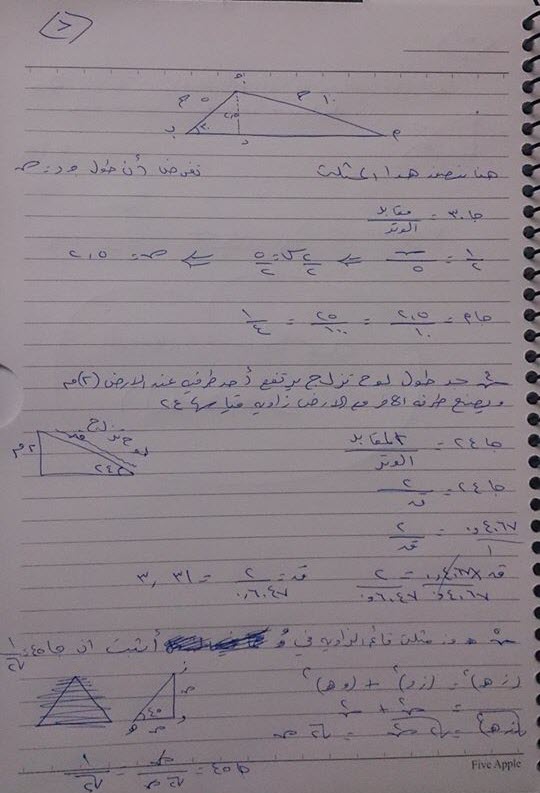 ٢
جـ
٥ م
١٠ م
٢,٥
ب
٣٠
د
م
هنا ننصف هذا المثلث
نفرض أن طول جـ د = ص
جا ٣٠ = مقابل / الوتر
١/٢ = ص/٥ ⇐ ٢ص/٢ = ٥/٢ ⇐ ص = ٢,٥
جا م = ٢,٥/١٠ = ٢٥/١٠٠ = ١/٤
جد طول لوح تزلج يرتفع أحد طرفيه عند الارض (٢) م
ويصنع طرفه الآخر مع الارض زاوية قياسها ٢٤
لوح تزلج
٢ م
٢٤
جا ٢٤ = المقابل / الوتر
جا ٢٤ = ٢ / ق
٠,٤٠٦٧ / ١ = ٢ / ق
ق = ٢ / = ٣,٣١
هـ و ز مثلث قائم الزاوية في و أثبت ان جا ٤٥ = ١/√٢
(ز هـ)٢ = (ز و)٢ + (و هـ)٢
= ص٢ + ص٢
ز هـ = √٢ص٢ = √٢ ص
ز
ص
٤٥
هـ
ص
و
جا ٤٥ = ص/√٢ ص = ١/√٢
Five Apple